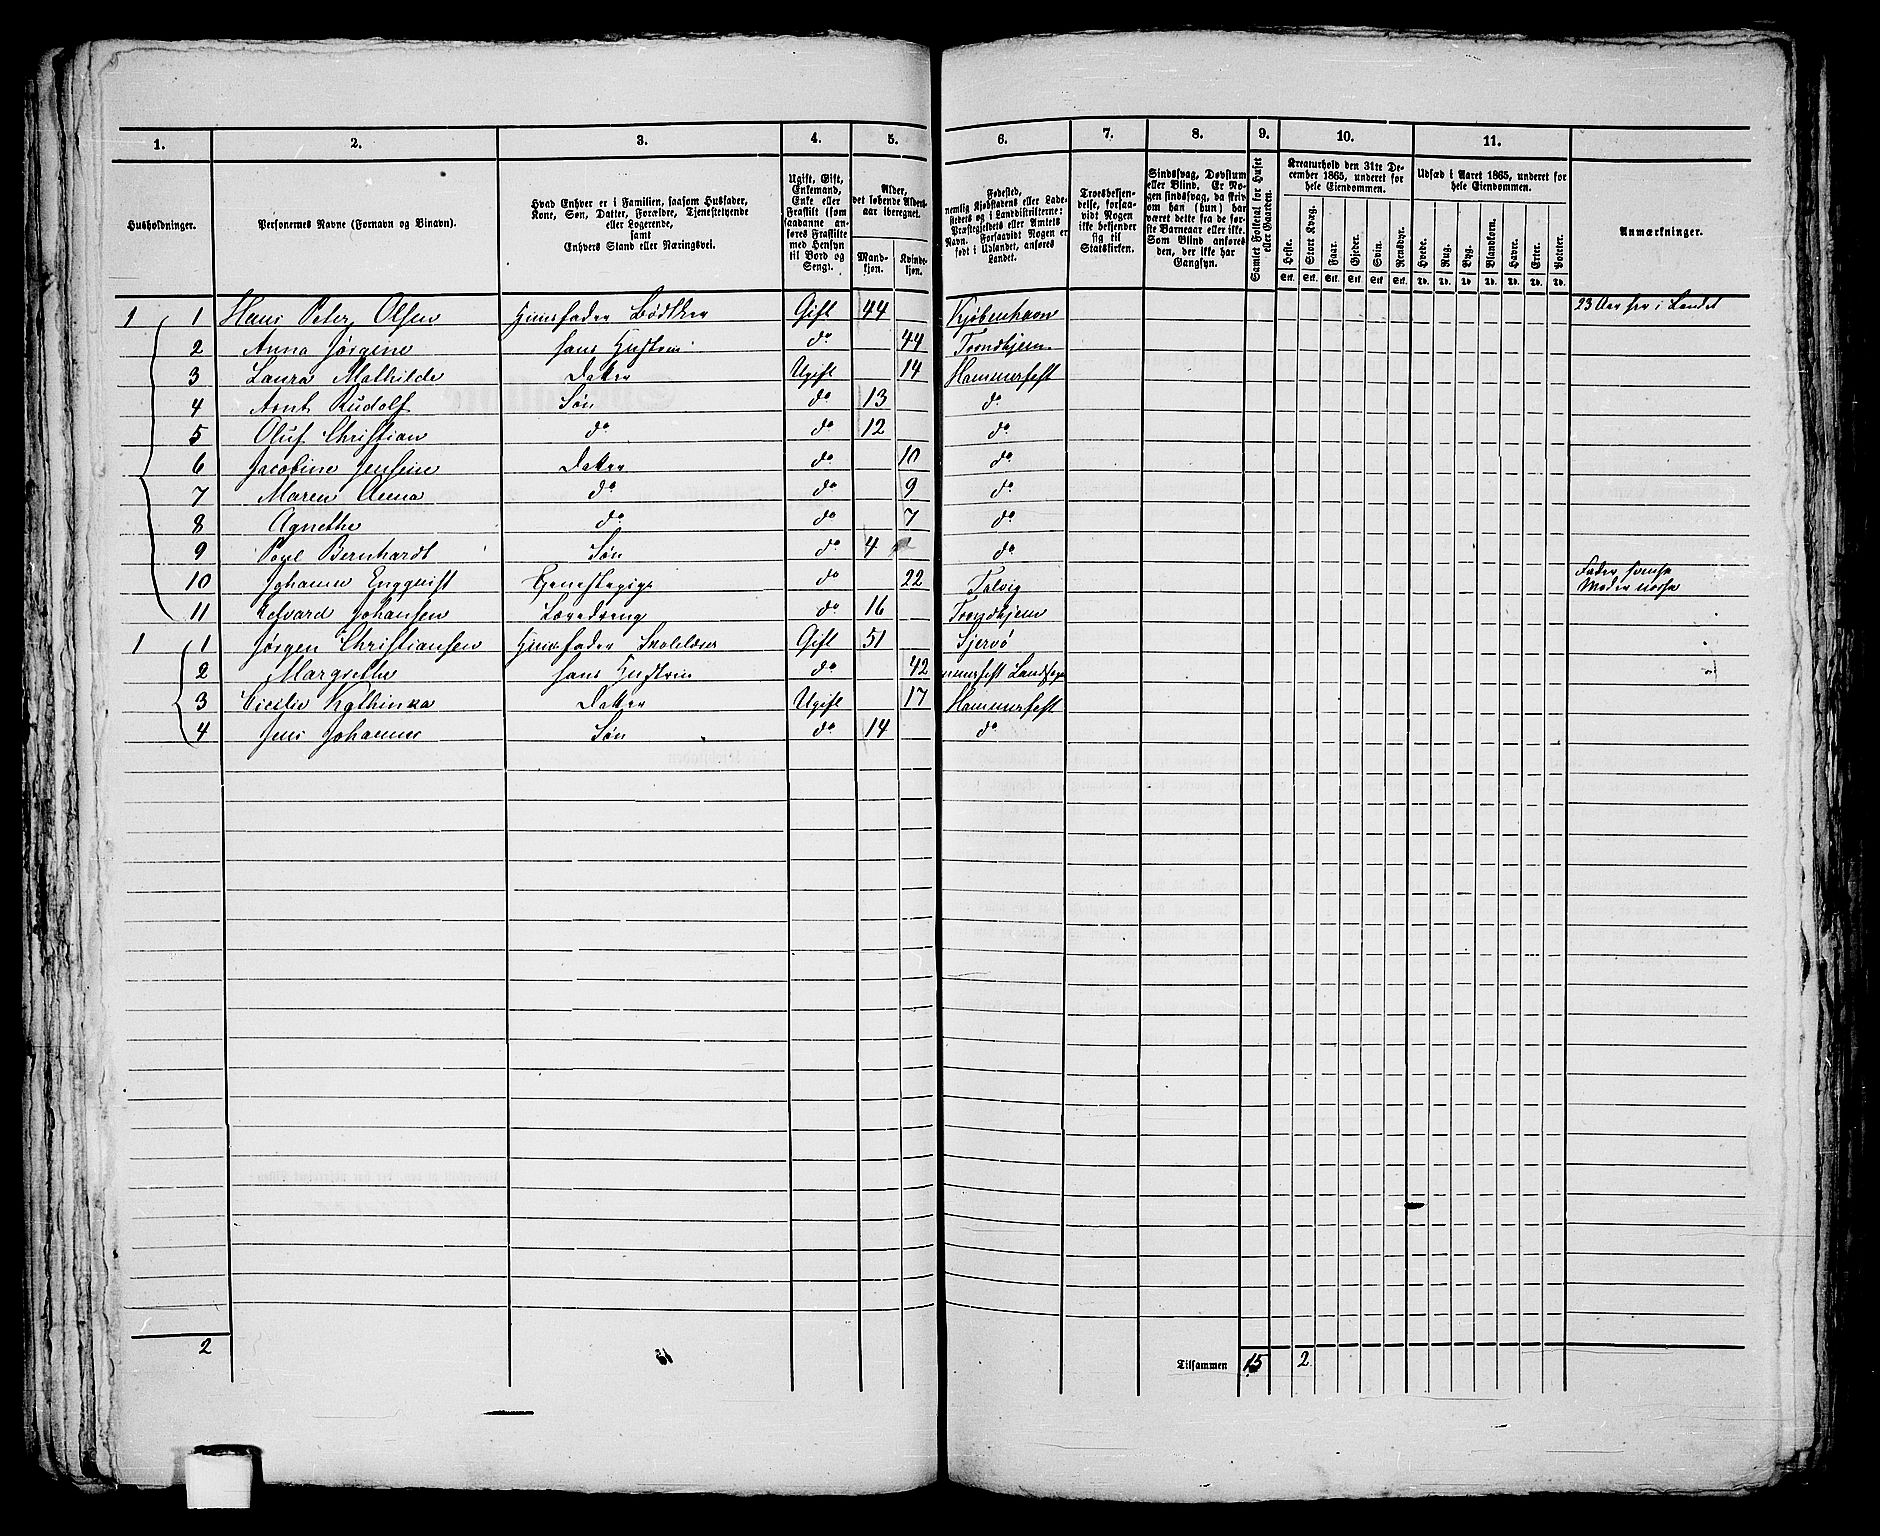 1. 2. 3. 4. 5. 6. 7. 8. 9. 10. 11.
Husholdninger.
Personernes Navne (Fornavn og Binavn).
Hvad Enhver er i Familien, saasom Husfader,
Kone, Søn, Datter, Forældre, Tjenestetyende
eller Logerende,
samt
Enhvers Stand eller Næringsvei.
Ugift, Gift,
Enkemand,
Enke eller
Fraskilt (som
saadanne an-
føres Fraskilte
med Hensyn
til Bord og
Seng).
Alder,
det løbende Alders-
aar iberegnet.
Mand-
kjøn.
Kvinde-
kjøn.
Fødested,
nemlig Kjøbstadens eller Lade-
stedets og i Landdistrikterne:
Præstegjeldets eller Amtets
Navn. Forsaavidt Nogen er
født i Udlandet, anføres
Landet.
Troesbekjen-
delse, forsaa-
vidt Nogen
ikke bekjender
sig til
Statskirken.
Sindssvag, Døvstum
eller Blind. Er No-
gen sindssvag, da skriv
om han (hun) har
været dette fra de før-
ste Barneaar eller ikke.
Som Blind anføres
den, der ikke har
Gangsyn.
Samlet Folketal for Huset
eller Gaarden.
Kreaturhold den 31te De-
cember 1865, underet for
hele Eiendommen.
Heste. Stort Kvæg. Faar. Gjeder. Svin. Rensdyr.
Stk. Stk. Stk. Stk. Stk. Stk.
Udsæd i Aaret 1865, underet for
hele Eiendommen.
Hvede. Rug. Byg. Blandkorn. Havre. Erter. Poteter.
Td. Td. Td. Td. Td. Td. Td.
Anmærkninger.
1 1 Hans Peter Olsen Huusfader Bødtker Gift 44 Kjøbenhavn 23 Aar her i Landet
2 Anna Jørgine hans Hustru do 44 Trondhjem
3 Laura Mathilde Datter Ugift 14 Hammerfest
4 Arnt Rudolf Søn do 13 do
5 Oluf Christian do do 12 do
6 Jacobine Jensine Datter do 10 do
7 Maren Anna do do 9 do
8 Agnethe do do 7 do
9 Poul Bernhardt Søn do 4 do
10 Johanne Engqvist Tjenestepige do 22 Talvig Fader svensk Moder norsk
11 Edvard Johansen Læredreng do 16 Trondhjem
1 1 Jørgen Christiansen Huusfader Gift 51 Skjervø
2 Margrethe hans Hustru do 42
3 Cicilie Kathinka Datter Ugift 17 Hammerfest
4 Jens Johannes Søn do 14 do
2
Tilsammen 15 2